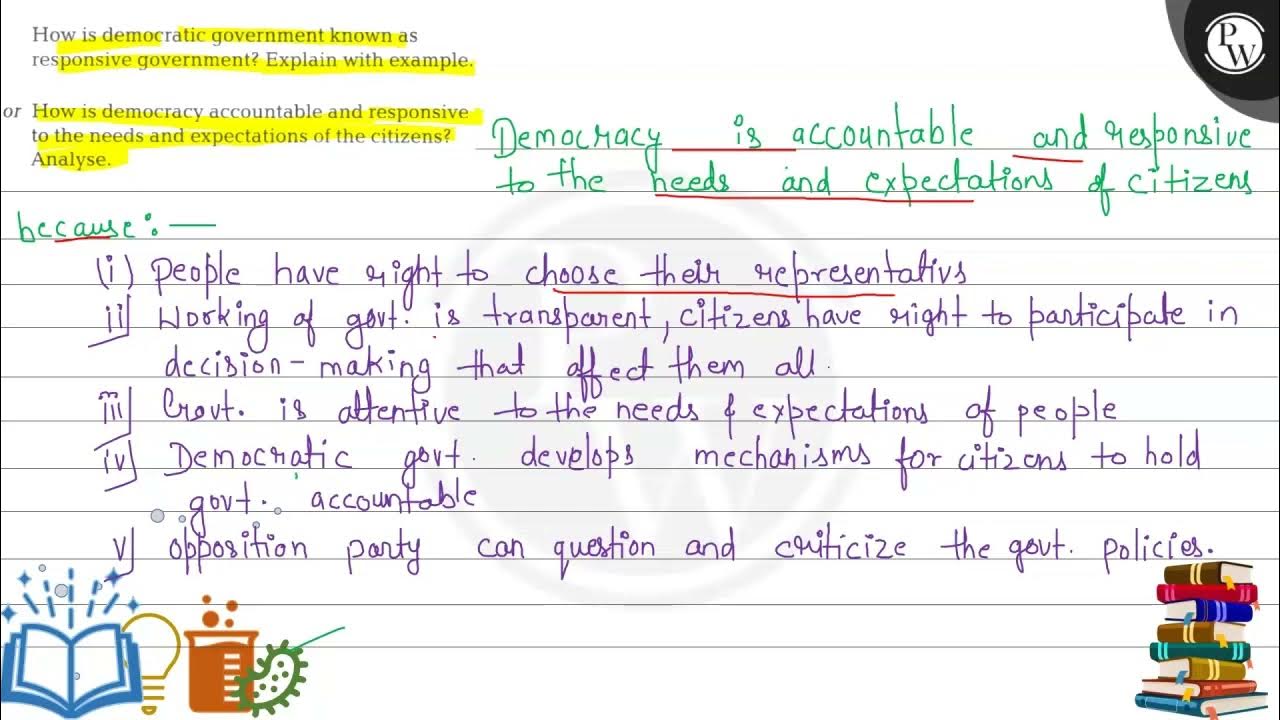 How is democratic government known as
responsive government? Explain with example.
or How is democracy accountable and responsive
to the needs and expectations of the citizens?
Analyse.
PW
Democracy is accountable and responsive
to the needs and expectations of citizens
because:—
(i) People have right to choose their representativs
ii] Working of govt. is transparent, citizens have right to participate in
decision-making that affect them all.
iii] Govt. is attentive to the needs & expectations of people
iv] Democratic govt. develops mechanisms for citizens to hold
govt. accountable
v] opposition party can question and criticize the govt. policies.